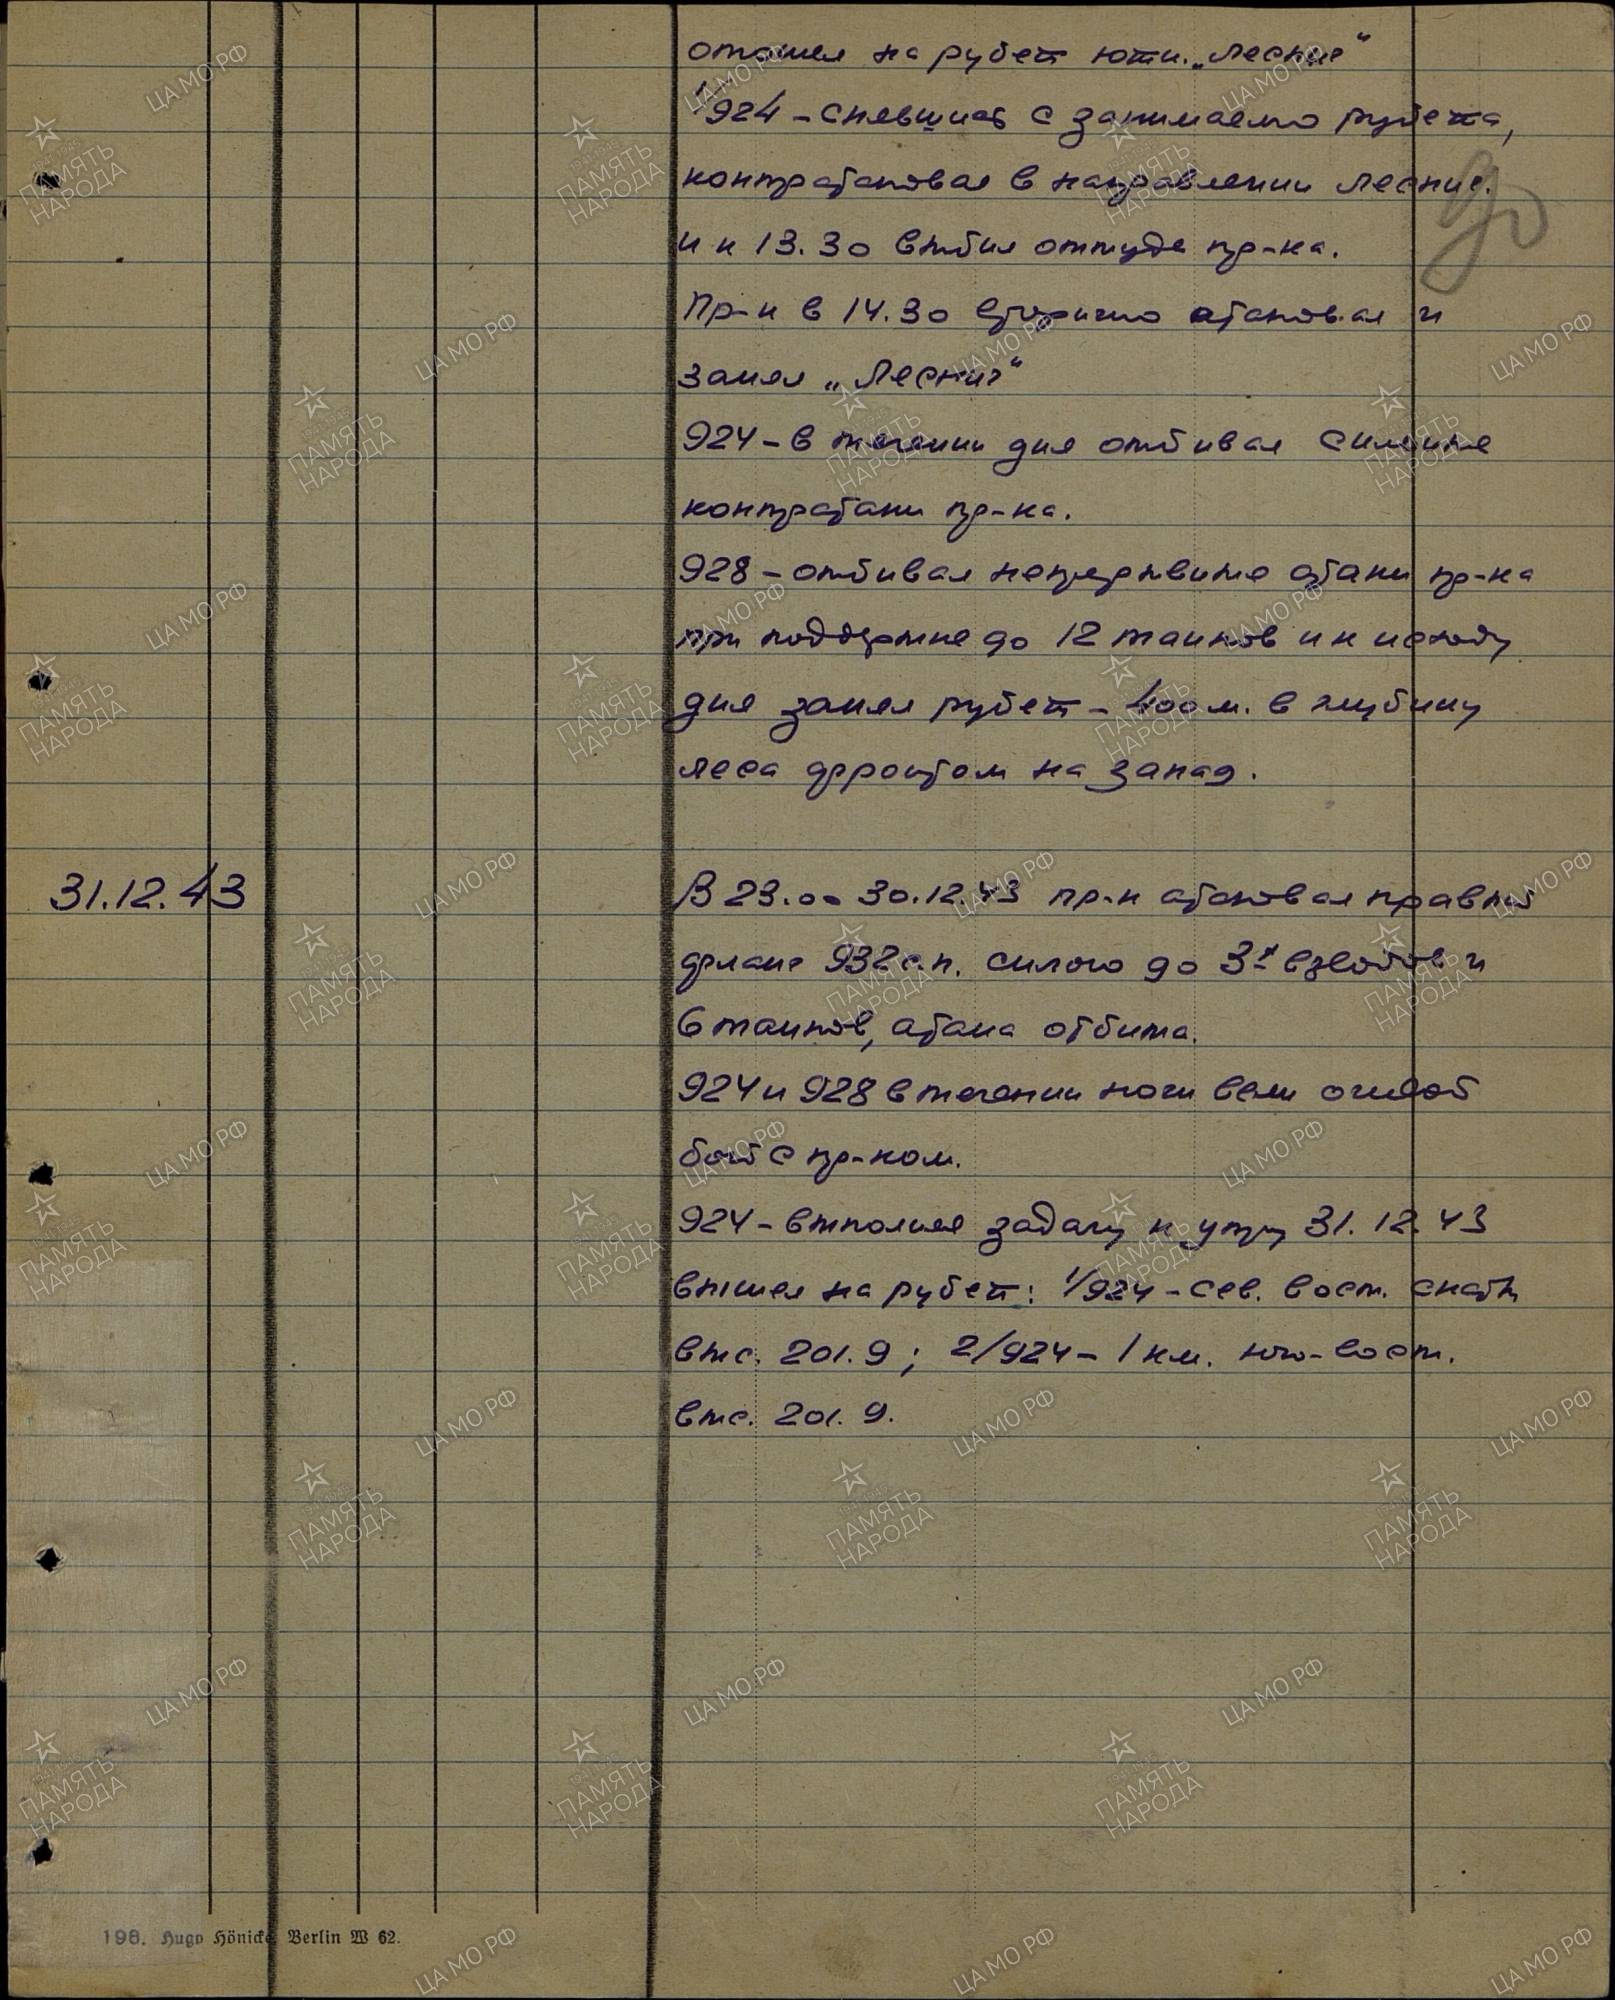 отошел на рубеж южн. „Лесник“
1/924 – снявшись с занимаемого рубежа,
контратаковал в направлении Лесник.
и к 13.30 выбил оттуда пр-ка.
Пр-к в 14.30 вторично атаковал и
занял „Лесник“
924 – в течении дня отбивал сильные
контратаки пр-ка.
928 – отбивал непрерывные атаки пр-ка
при поддержке до 12 танков и к исходу
дня занял рубеж – 400 м. в глубину
леса фронтом на запад.
31.12.43 В 23.00 30.12.43 пр-к атаковал правый
фланг 932 с.п. силою до 3х взводов и
6 танков, атака отбита.
924 и 928 в течении ночи вели огневой
бой с пр-ком.
924 – выполняя задачу к утру 31.12.43
вышел на рубеж: 1/924 – сев. вост. скаты
выс. 201.9; 2/924 – 1 км. юго-вост.
выс. 201.9.
198. Hugo Hönicke, Berlin W 62.